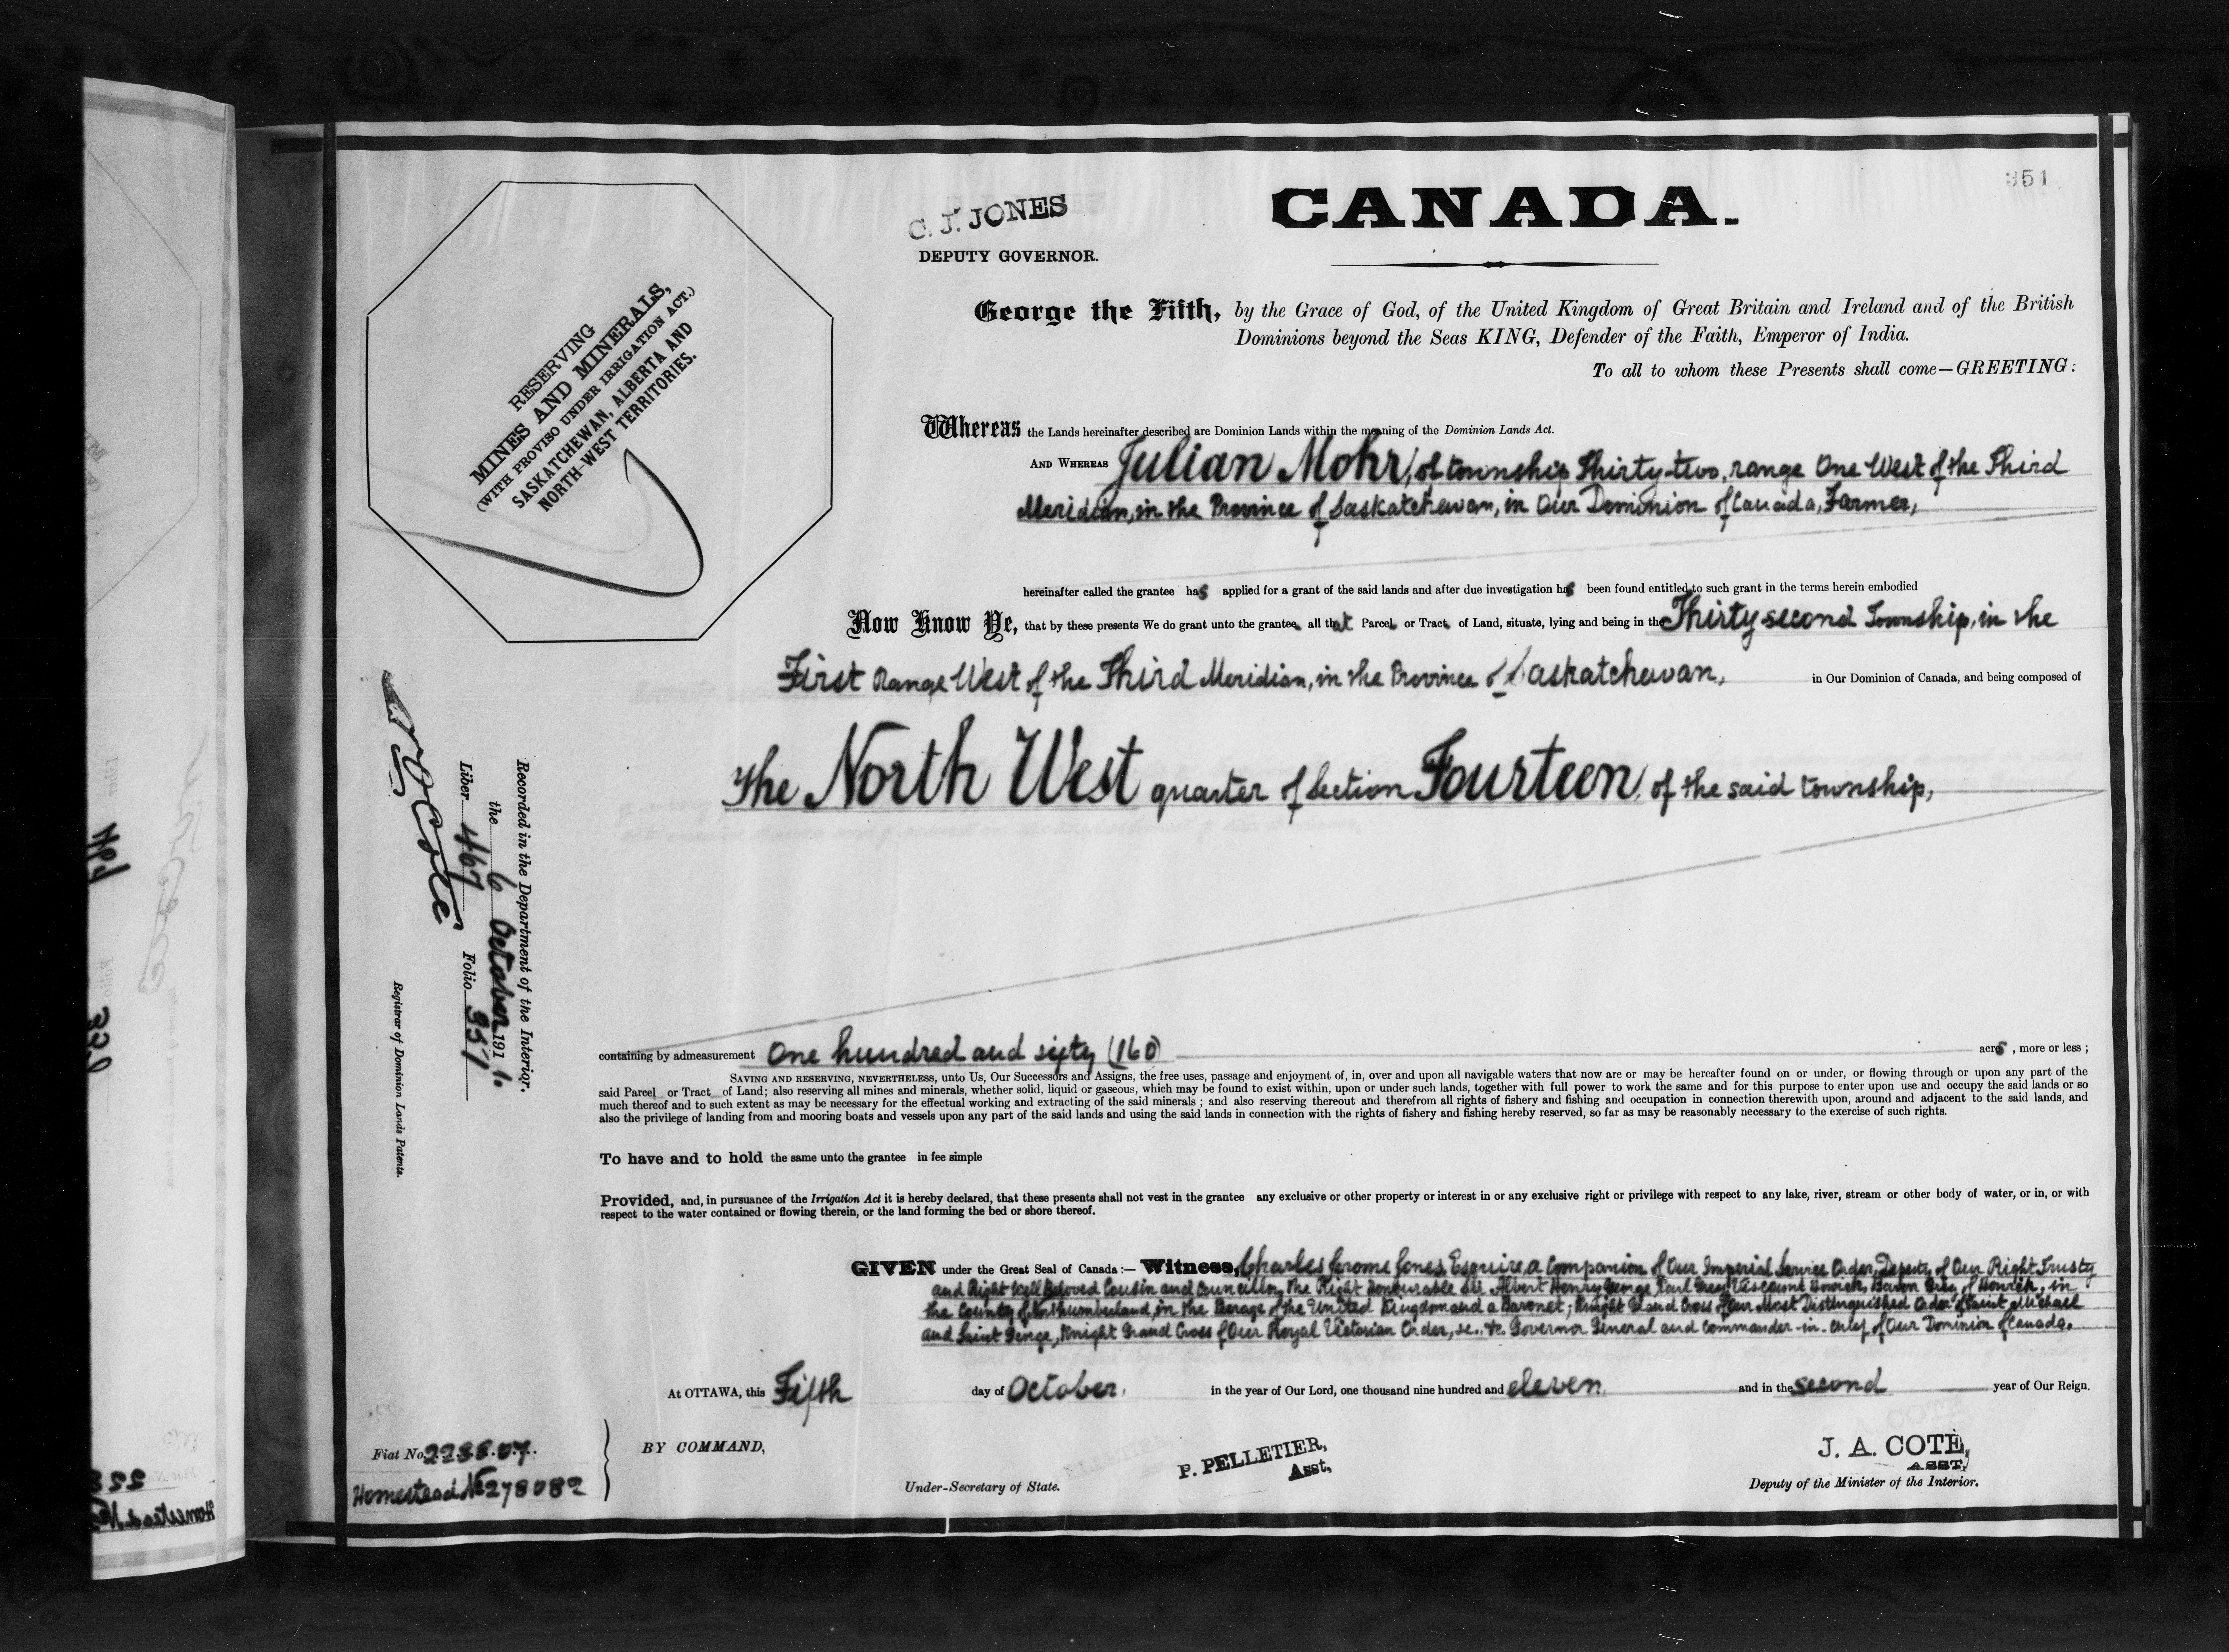 351
C. J. JONES
DEPUTY GOVERNOR.
CANADA.
RESERVING
MINES AND MINERALS,
(WITH PROVISO UNDER IRRIGATION ACT.)
SASKATCHEWAN, ALBERTA AND
NORTH-WEST TERRITORIES.
George the Fifth, by the Grace of God, of the United Kingdom of Great Britain and Ireland and of the British
Dominions beyond the Seas KING, Defender of the Faith, Emperor of India.
To all to whom these Presents shall come—GREETING:
Whereas the Lands hereinafter described are Dominion Lands within the meaning of the Dominion Lands Act.
AND WHEREAS Julian Mohr, of township Thirty-two, range One West of the Third
Meridian, in the Province of Saskatchewan, in Our Dominion of Canada, Farmer,
hereinafter called the grantee has applied for a grant of the said lands and after due investigation has been found entitled to such grant in the terms herein embodied
Now Know Ye, that by these presents We do grant unto the grantee, all that Parcel or Tract of Land, situate, lying and being in the Thirty second Township, in the
First Range West of the Third Meridian, in the Province of Saskatchewan, in Our Dominion of Canada, and being composed of
The North West quarter of Section Fourteen, of the said township,
Recorded in the Department of the Interior,
the 6 October 1911.
Liber 467 Folio 351
Registrar of Dominion Lands Patents.
containing by admeasurement One hundred and sixty (160) acres, more or less;
SAVING AND RESERVING, NEVERTHELESS, unto Us, Our Successors and Assigns, the free uses, passage and enjoyment of, in, over and upon all navigable waters that now are or may be hereafter found on or under, or flowing through or upon any part of the
said Parcel or Tract of Land; also reserving all mines and minerals, whether solid, liquid or gaseous, which may be found to exist within, upon or under such lands, together with full power to work the same and for this purpose to enter upon use and occupy the said lands or so
much thereof and to such extent as may be necessary for the effectual working and extracting of the said minerals; and also reserving thereout and therefrom all rights of fishery and fishing and occupation in connection therewith upon, around and adjacent to the said lands, and
also the privilege of landing from and mooring boats and vessels upon any part of the said lands and using the said lands in connection with the rights of fishery and fishing hereby reserved, so far as may be reasonably necessary to the exercise of such rights.
To have and to hold the same unto the grantee in fee simple
Provided, and, in pursuance of the Irrigation Act it is hereby declared, that these presents shall not vest in the grantee any exclusive or other property or interest in or any exclusive right or privilege with respect to any lake, river, stream or other body of water, or in, or with
respect to the water contained or flowing therein, or the land forming the bed or shore thereof.
GIVEN under the Great Seal of Canada:— Witness, Charles Jerome Jones, Esquire, a Companion of Our Imperial Service Order, Deputy of Our Right Trusty
and Right Well Beloved Cousin and Councillor, The Right Honourable Sir Albert Henry George Earl Grey, Viscount Howick, Baron Grey of Howick, in
the County of Northumberland, in the Peerage of the United Kingdom and a Baronet; Knight Grand Cross of Our Most Distinguished Order of Saint Michael
and Saint George, Knight Grand Cross of Our Royal Victorian Order, &c., &c. Governor General and Commander-in-Chief of Our Dominion of Canada.
At OTTAWA, this Fifth day of October, in the year of Our Lord, one thousand nine hundred and eleven and in the second year of Our Reign.
Fiat No. 223807.
Homestead No 278082
BY COMMAND,
P. PELLETIER,
Asst,
Under-Secretary of State.
J. A. COTE,
ASST,
Deputy of the Minister of the Interior.